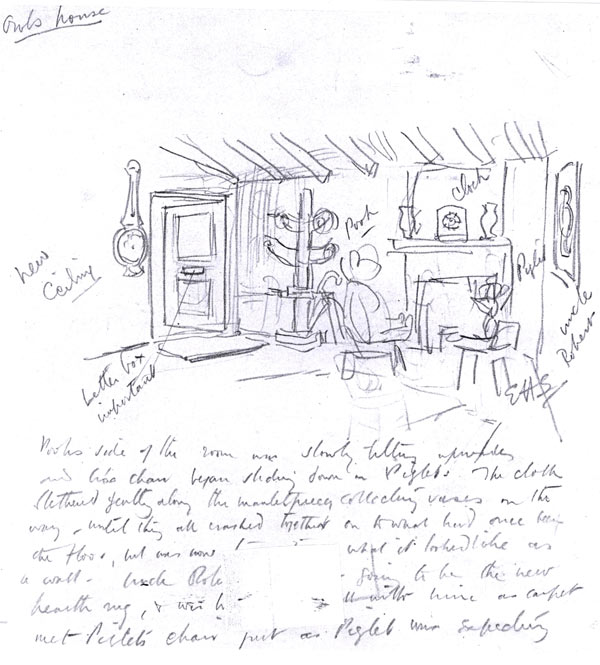 Owls house
Clock
Pooh
Piglet
new
Ceiling
Letter box
important
Uncle
Robert
EHS
Pooh's side of the room was slowly tilting upwards
and his chair began sliding down on Piglet's. The clock
slithered gently along the mantelpiece, collecting vases on the
way, until they all crashed together on to what had once been
the floor, but was now what it looked like as
a wall. Uncle going to be the new
hearth rug, & as carpet
met Piglet's chair just as Piglet was expecting